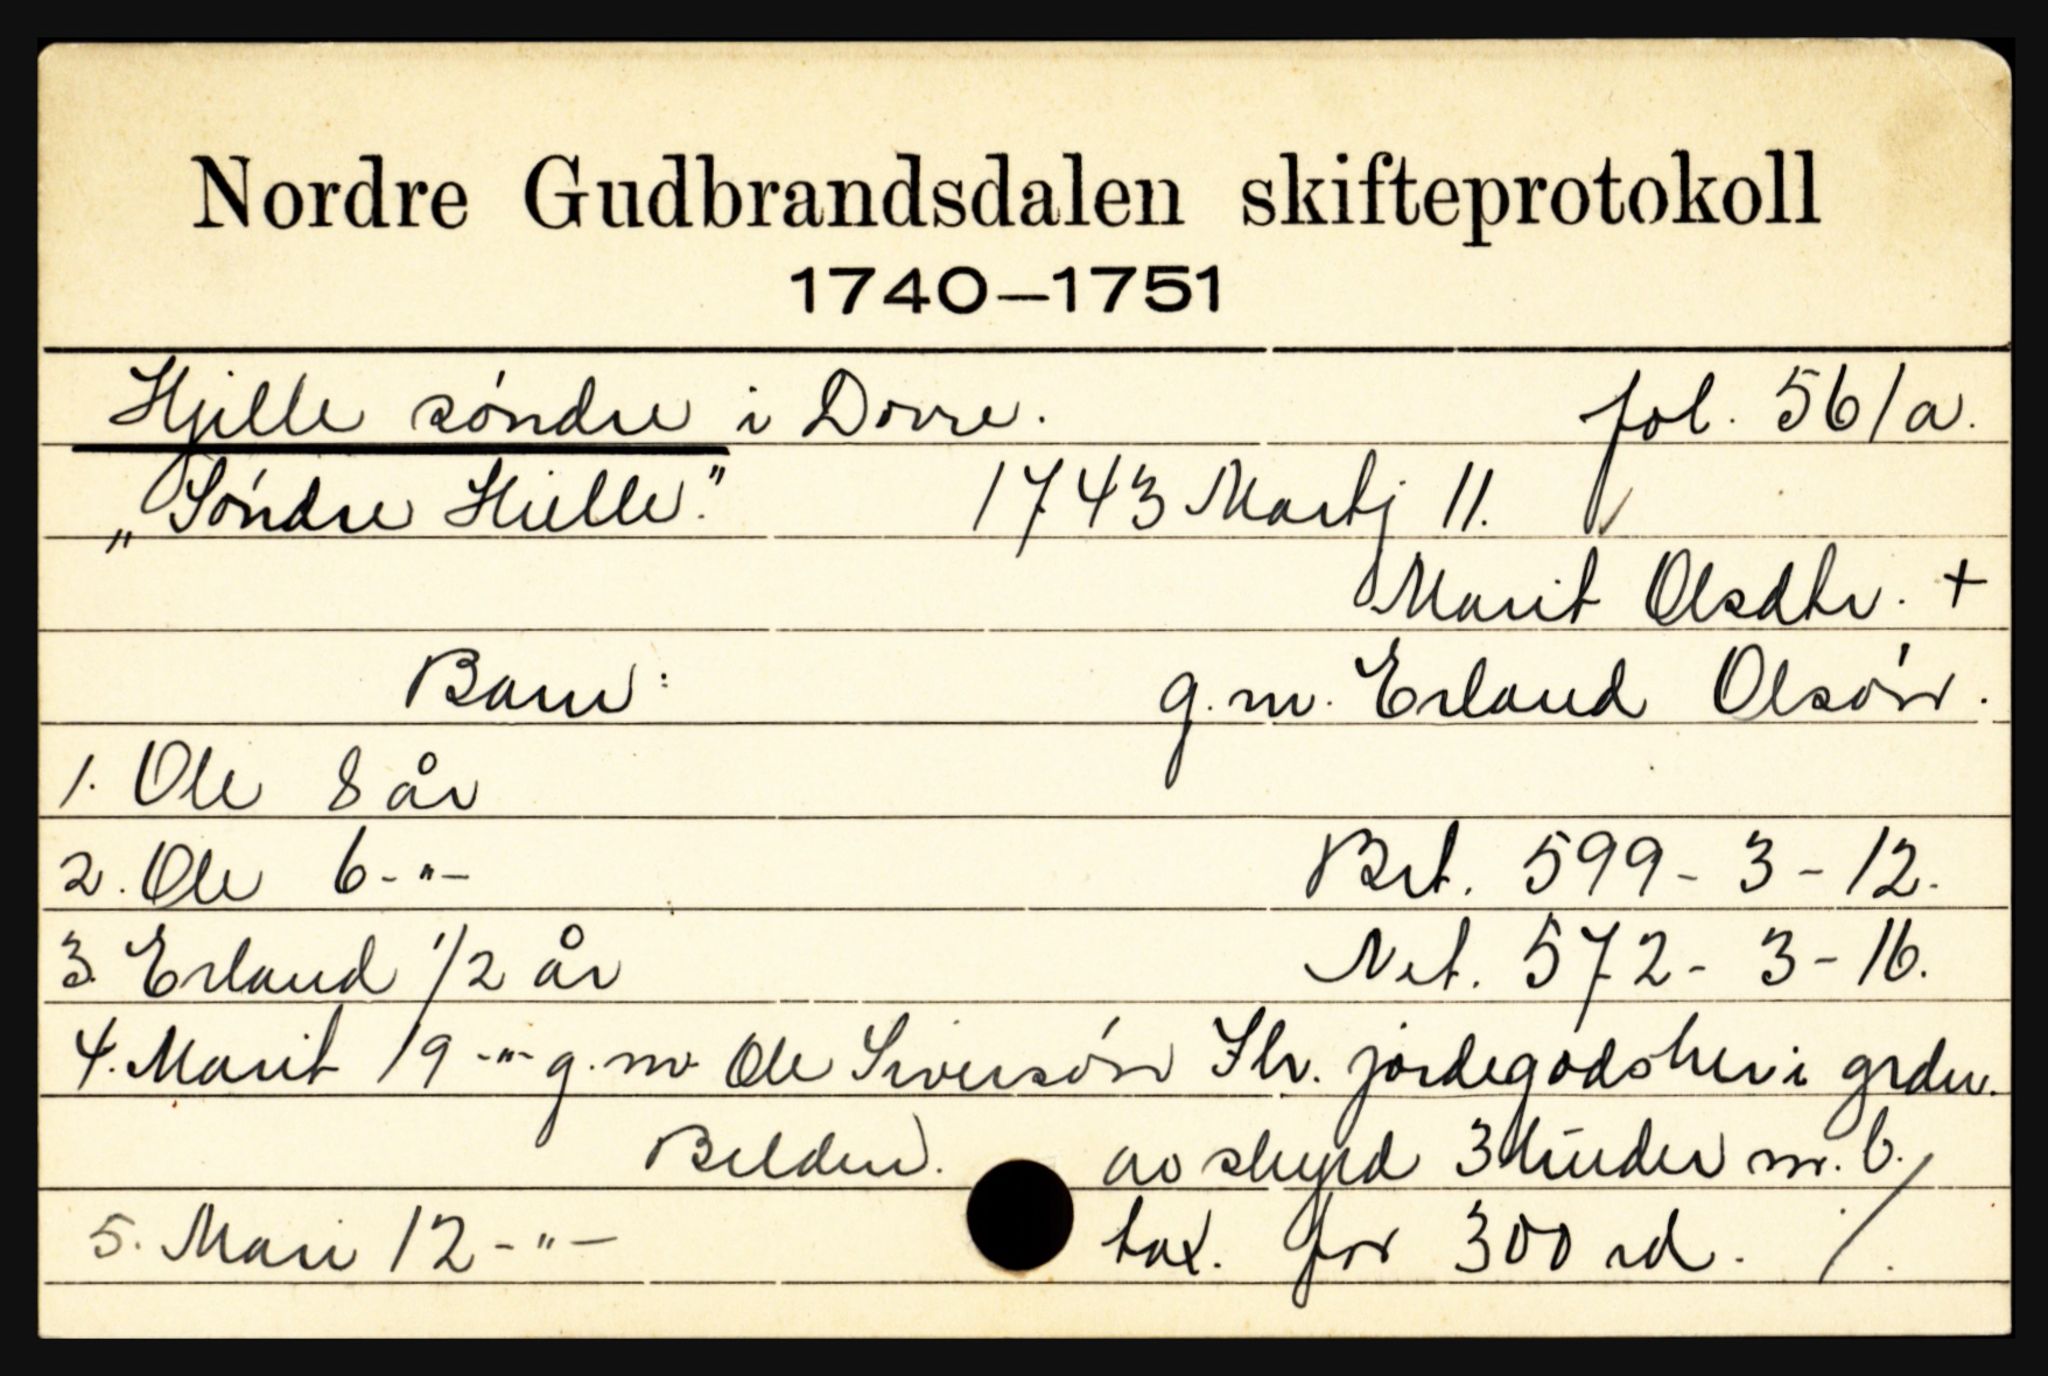 Nordre Gudbrandsdalen skifteprotokoll
1740—1751
Hjelle søndre i Dovre. fol. 56/a.
„Søndre Hielle." 1743 Martj 11.
Marit Olsdtr. +
Barn: g.m. Erland Olsøn.
1. Ole 8 år
2. Ole 6 -"- Brt. 599 - 3 - 12.
3. Erland 1/2 år Net. 572 - 3 - 16.
4. Marit 19 -"- g.m. Ole Siversøn Str. jordegods her i grden.
Belden. av skyld 3 huder m.b./
5. Mari 12 -"- tax. for 300 rd. /.